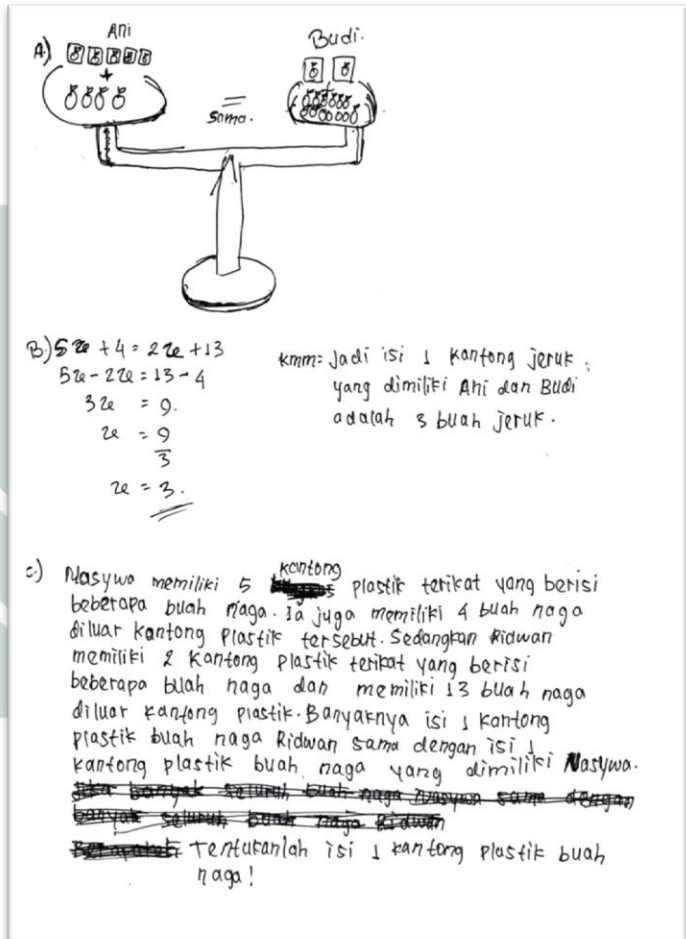 A.) Ani
Budi.
+
=
sama.
B.) 5x + 4 = 2x + 13
5x - 2x = 13 - 4
3x = 9.
x = 9
3
x = 3.
kmm= Jadi isi 1 kantong jeruk
yang dimiliki Ani dan Budi
adalah 3 buah jeruk.
c.) Nasywa memiliki 5 kantong plastik terikat yang berisi
beberapa buah naga. Ia juga memiliki 4 buah naga
diluar kantong plastik tersebut. Sedangkan Ridwan
memiliki 2 kantong plastik terikat yang berisi
beberapa buah naga dan memiliki 13 buah naga
diluar kantong plastik. Banyaknya isi 1 kantong
plastik buah naga Ridwan sama dengan isi 1
kantong plastik buah naga yang dimiliki Nasywa.
Jika banyak seluruh buah naga Nasywa sama dengan
banyak seluruh buah naga Ridwan
Tentukanlah isi 1 kantong plastik buah
naga!